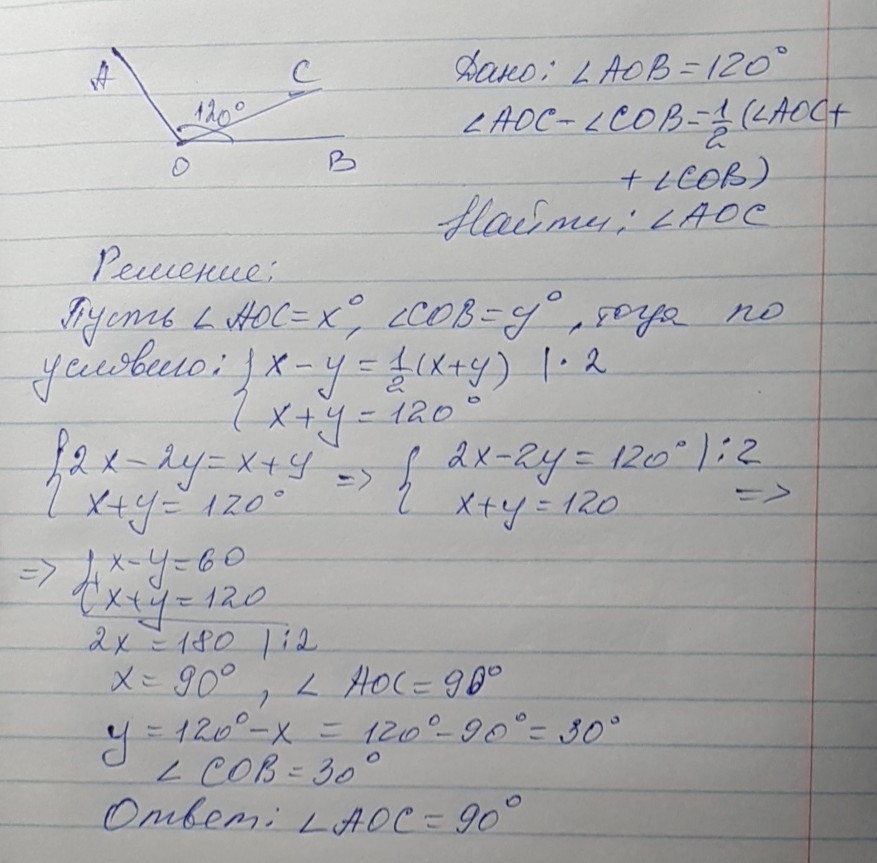 A
C
120°
O
B
Дано: ∠AOB = 120°
∠AOC - ∠COB = 1/2 (∠AOC +
+ ∠COB)
Найти: ∠AOC
Решение:
Пусть ∠AOC = x°, ∠COB = y°, тогда по
условию: { x - y = 1/2 (x + y) | · 2
x + y = 120°
{ 2x - 2y = x + y => { 2x - 2y = 120° | : 2
x + y = 120° x + y = 120 =>
=> { x - y = 60
+ x + y = 120
2x = 180 | : 2
x = 90°, ∠ AOC = 90°
y = 120° - x = 120° - 90° = 30°
∠ COB = 30°
Ответ: ∠AOC = 90°